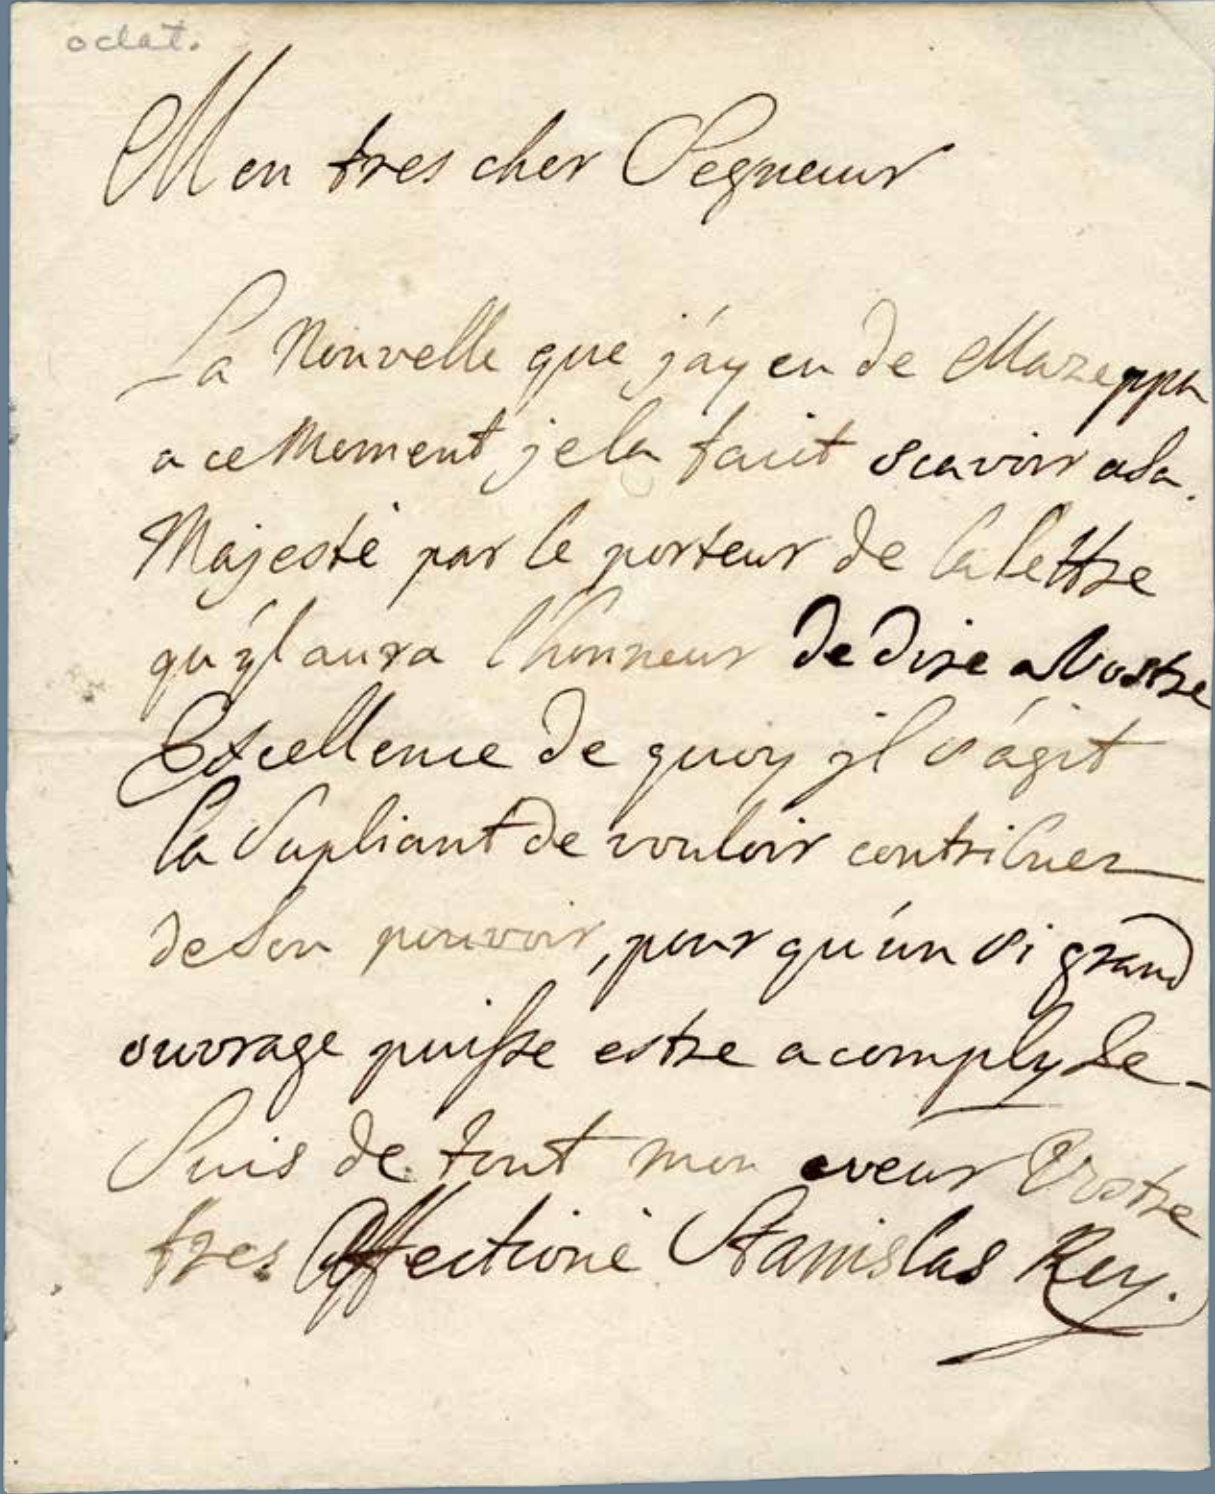 odat.
Mon tres cher Segneur
La Nouvelle que j'ay eu de Mazeppa
a ce Moment je la fait scavoir a Sa
Majesté par le porteur de la lettre
qu'yl aura l'honneur de dire a Vostre
Excellence de quoy jl s'agit
la Supliant de vouloir contribuer
de Son pouvoir, pour qu'un si grand
ouvrage puisse estre acomply Je
Suis de tout mon coeur Vostre
tres Affectioné Stanislas Rey.